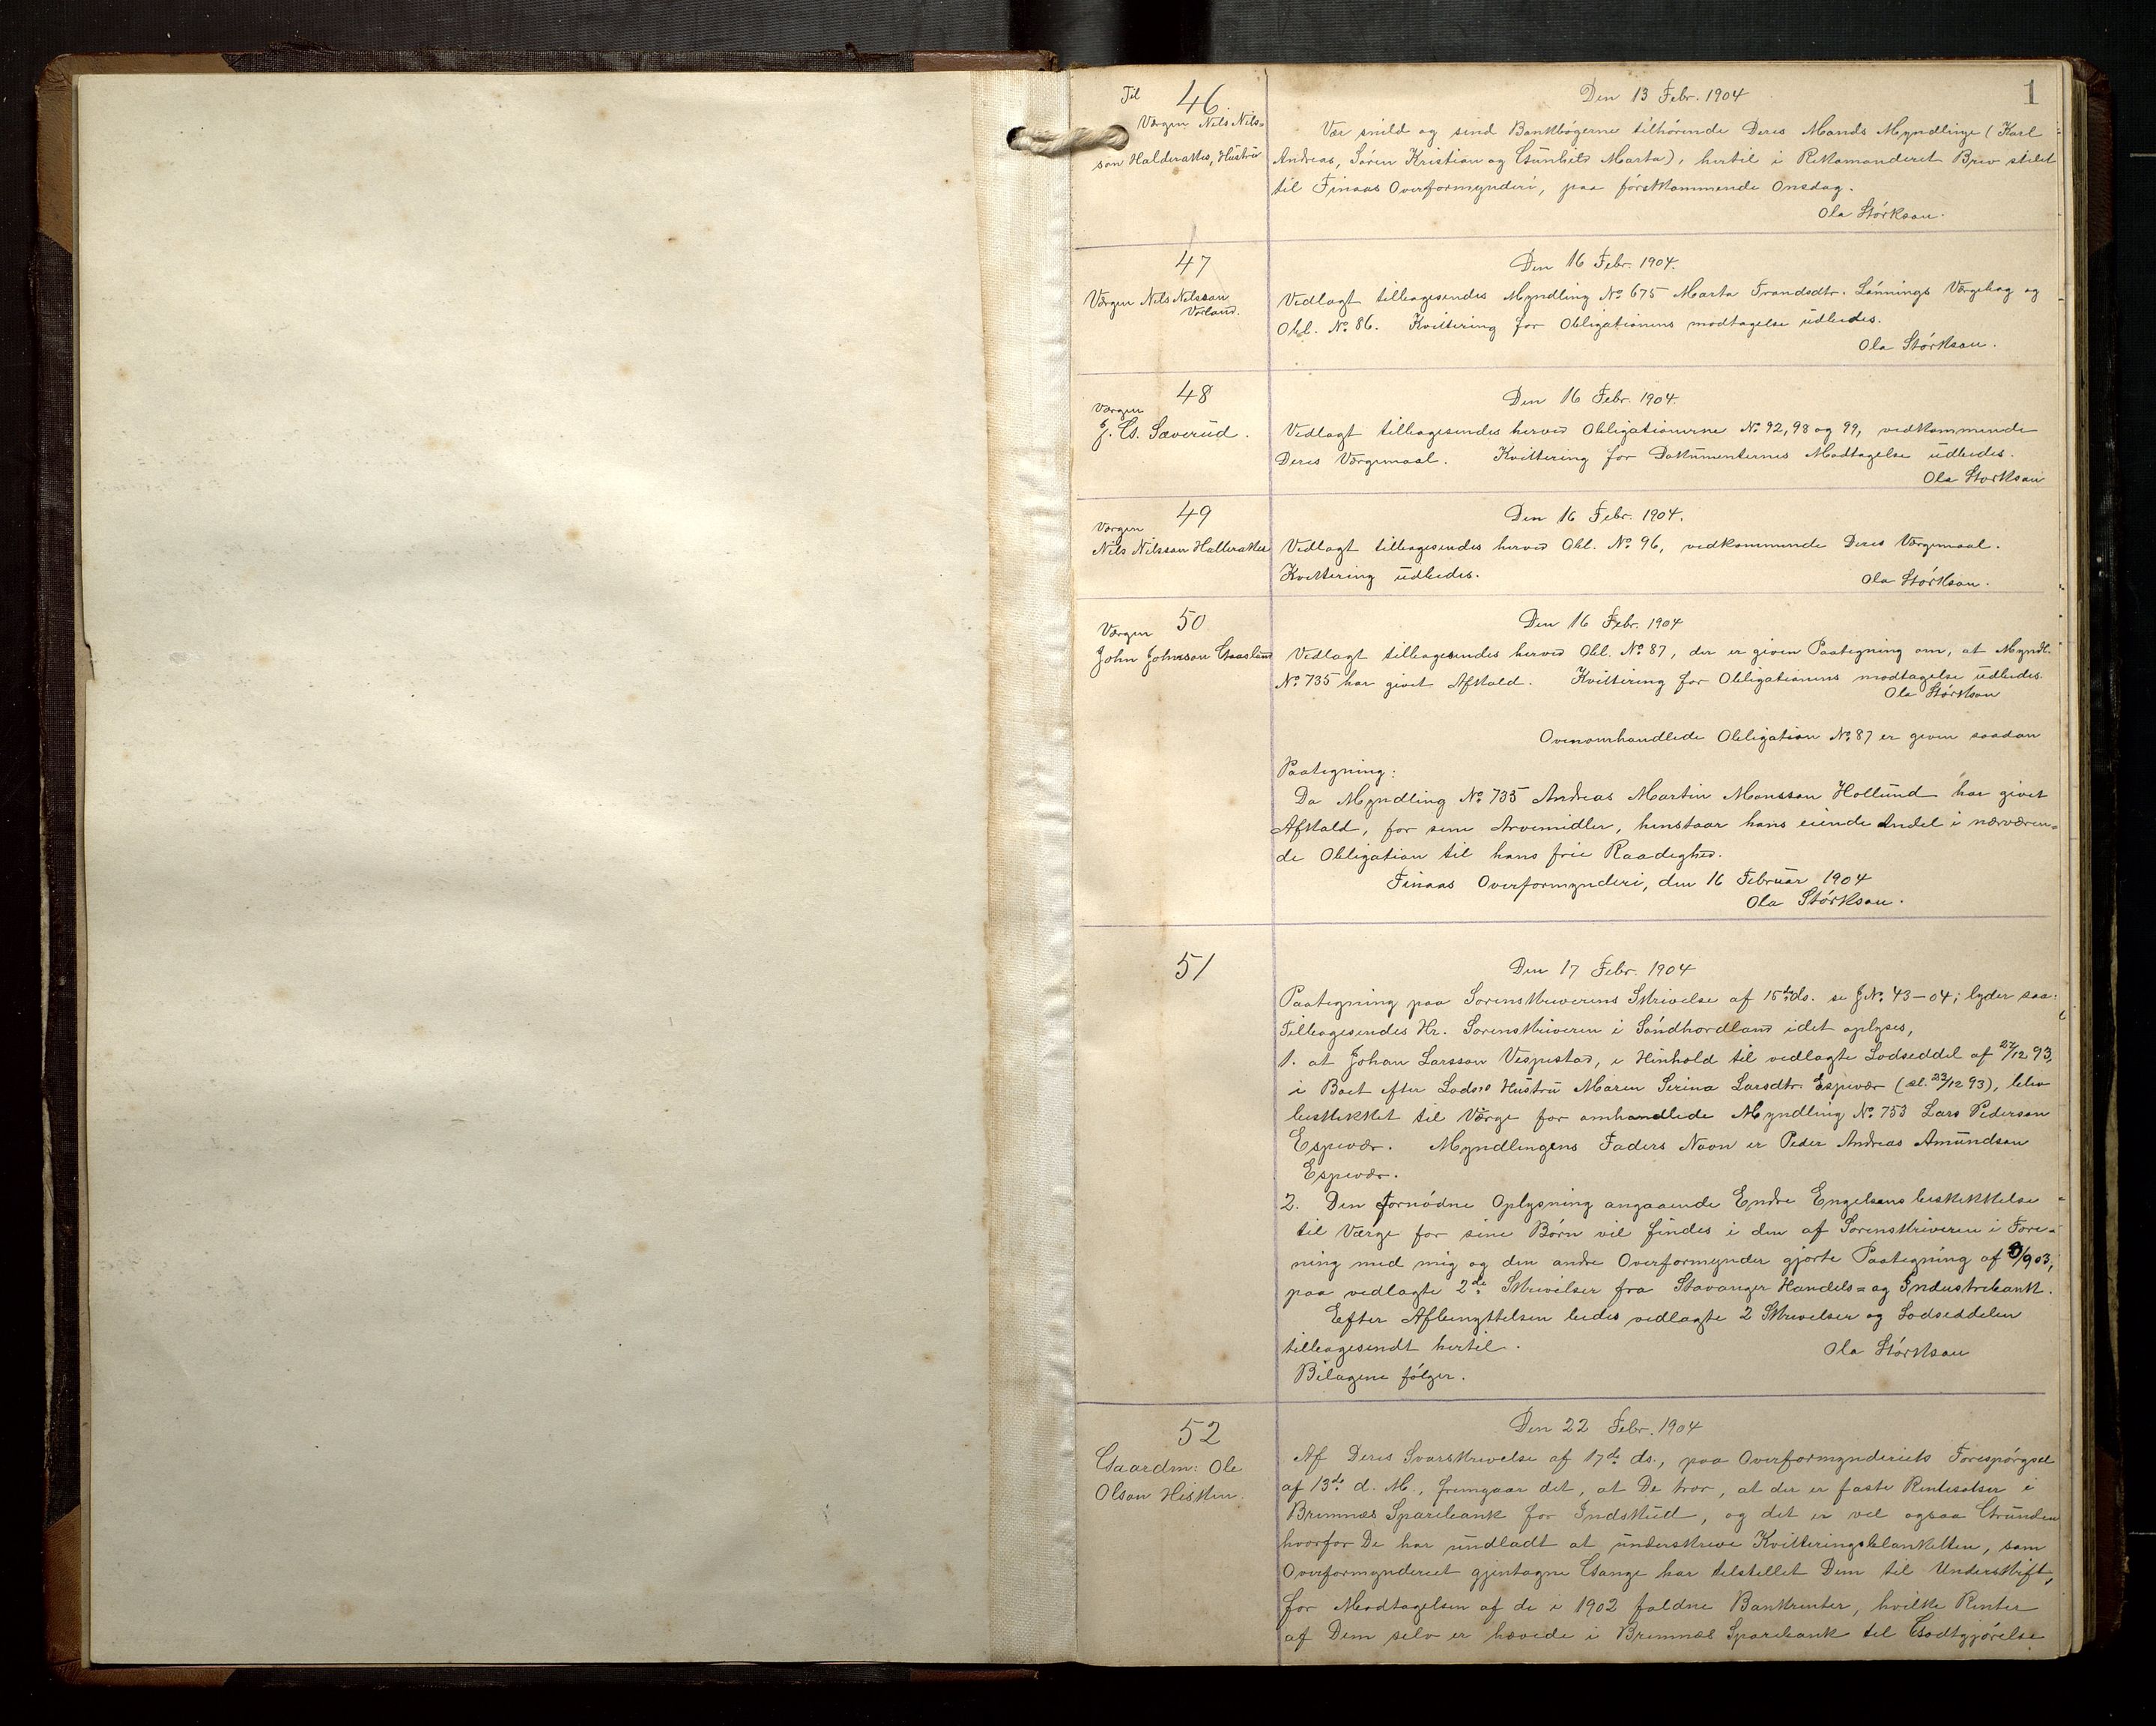 1
Til 46
Værgen Nils Nils-
son Halderakers, Hustru
Den 13 Febr. 1904
Vær snild og send Bankbøgerne tilhørende Deres Mands Myndlinge (Karl
Andreas, Søren Kristian og Gunhild Marta), hertil i Rekomanderet Brev stilet
til Finaas Overformynderi, paa førstkommende Onsdag.
Ola Størkson.
47
Værgen Nils Nilsson
Vorland.
Den 16 Febr. 1904.
Vedlagt tilbagesendes Myndling No 675 Marta Trondsdtr. Lønnings Værgebog og
Obl. No 86. Kvittering for Obligationens modtagelse udbedes.
Ola Størkson.
48
Værgen
J. G. Sæverud.
Den 16 Febr. 1904.
Vedlagt tilbagesendes herved Obligationerne No 92, 98 og 99, vedkommende
Deres Værgemaal. Kvittering for Dokumenternes Modtagelse udbedes.
Ola Størkson
49
Værgen
Nils Nilsson Halleraker
Den 16 Febr. 1904.
Vedlagt tilbagesendes herved Obl. No 96, vedkommende Deres Værgemaal.
Kvittering udbedes.
Ola Størkson.
50
Værgen
John Johnson Gaasland
Den 16 Febr. 1904
Vedlagt tilbagesendes herved Obl. No 87, der er given Paategning om, at Myndl.
No 735 har givet Afkald. Kvittering for Obligationens modtagelse udbedes.
Ola Størkson
Ovenomhandlede Obligation No 87 er given saadan
Paategning:
Da Myndling No 735 Andreas Martin Monsson Hollund har givet
Afkald, for sine Arvemidler, henstaar hans eiende Andel i nærværen-
de Obligation til hans frie Raadighed.
Finaas Overformynderi, den 16 Februar 1904
Ola Størkson.
51
Den 17 Febr. 1904
Paategning paa Sorenskriverens Skrivelse af 15de ds. se J No. 43-04; lyder saa:
Tilbagesendes Hr. Sorenskriveren i Søndhordland idet oplyses,
1. at Johan Larsson Vespestad, i Henhold til vedlagte Lodseddel af 27/12 93,
i Boet efter Lods's Hustru Maren Serina Larsdtr. Espevær (sl. 23/12 93), blev
beskikket til Værge for omhandlede Myndling No 753 Lars Pederson
Espevær. Myndlingens Faders Navn er Peder Andreas Amundson
Espevær.
2. Den fornødne Oplysning angaaende Endre Engelsens beskikkelse
til Værge for sine Børn vil findes i den af Sorenskriveren i Fore-
ning med mig og den andre Overformynder gjorte Paategning af 9/9 03,
paa vedlagte 2de Skrivelser fra Stavanger Handels- og Industribank.
Efter Afbenyttelsen bedes vedlagte 2 Skrivelser og Lodseddelen
tilbagesendt hertil.
Ola Størkson
Bilagene følger.
52
Gaardm: Ole
Olson Hisken.
Den 22 Febr. 1904
Af Deres Svarskrivelse af 17de ds., paa Overformynderiets Forespørgsel
af 13de d. M., fremgaar det, at De tror, at der er faste Rentesatser i
Bremnæs Sparebank for Indskud, og det er vel ogsaa Grunden
hvorfor De har undladt at underskrive Kvitteringsblanketten, som
Overformynderiet gjentagne Gange har tilstillet Dem til Underskrift,
for Modtagelsen af de i 1902 faldne Bankrenter, hvilke Renter
af Dem selv er hævede i Bremnæs Sparebank til Godtgjørelse